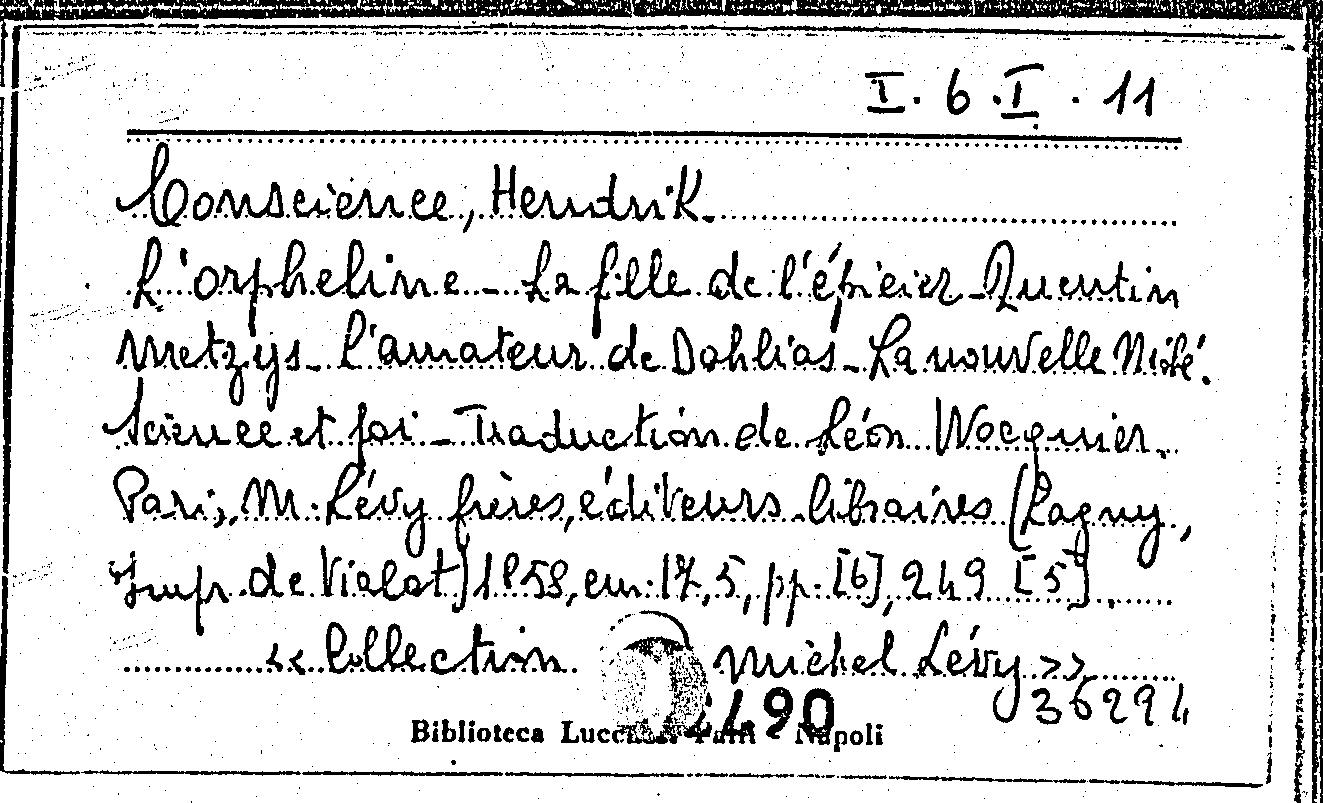 I. 6 . I . 11
Conscience, Hendrik.
L'orpheline - La fille de l'épicier - Quentin
Metzys - l'amateur de Dahlias - La nouvelle Niobé.
Science et foi - Traduction de Léon Wocquier.
Paris, M. Lévy frères, éditeurs libraires (Lagny,
Impr. de Vialat) 1858, cm. 17,5, pp. [6], 249 [5].
<< Collection Michel Lévy >>
490
Biblioteca Napoli